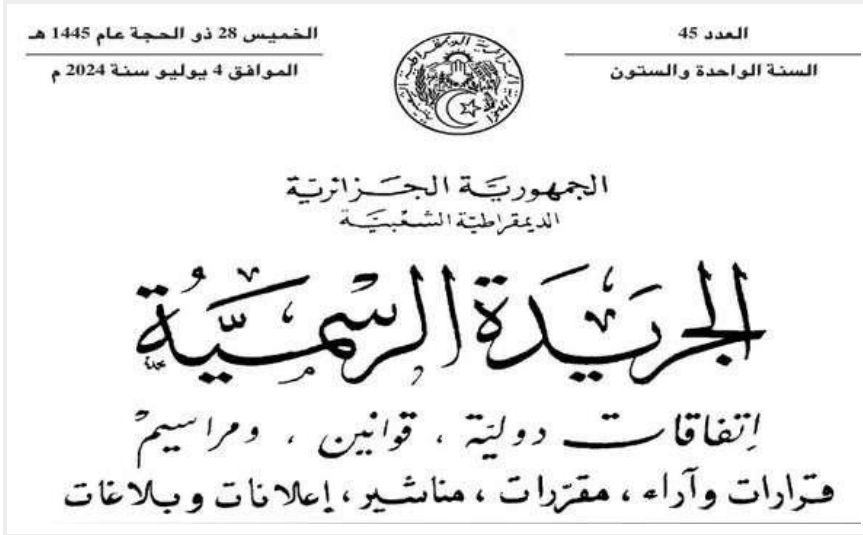 العدد 45
السنة الواحدة والستون
الخميس 28 ذو الحجة عام 1445 هـ
الموافق 4 يوليو سنة 2024 م
الجمهورية الجزائرية
الديمقراطية الشعبية
الجريدة الرسمية
اتفاقات دولية ، قوانين ، ومراسيم
قرارات وآراء ، مقررات ، مناشير ، إعلانات وبلاغات